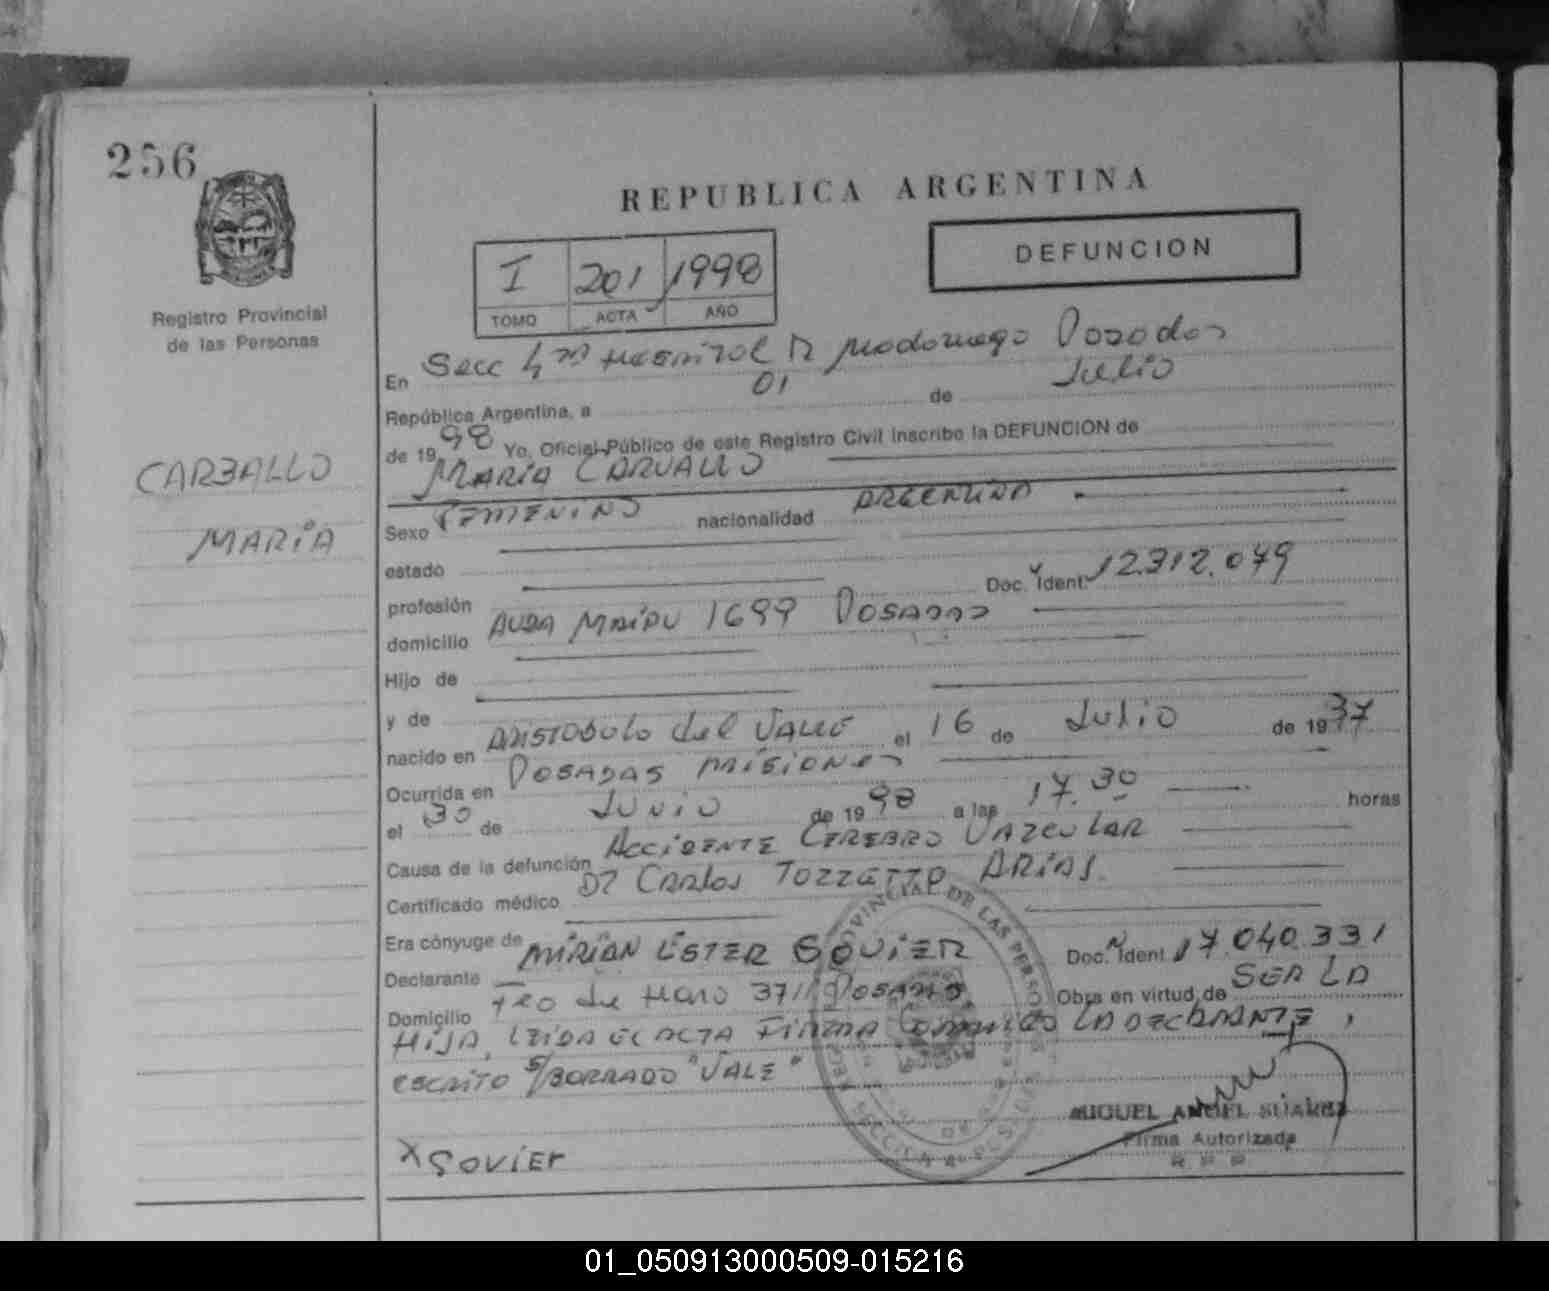 256
REPUBLICA ARGENTINA
DEFUNCION
I 201 1998
TOMO ACTA AÑO
Registro Provincial
de las Personas
En Secc 4ta Hospital R Madariaga Posadas
República Argentina, a 01 de Julio
de 1998 Yo, Oficial Público de este Registro Civil inscribo la DEFUNCION de
CARBALLO
MARIA
MARIA CARVALLO
Sexo FEMENINO nacionalidad ARGENTINA
estado
profesión Doc. Ident. 12.312.079
domicilio AVDA MAIPU 1699 POSADAS
Hijo de
y de
nacido en ARISTOBULO del VALLE el 16 de Julio de 1937
Ocurrida en POSADAS MISIONES
el 30 de JUNIO de 1998 a las 17.30 horas
Causa de la defunción ACCIDENTE CEREBRO VAZCULAR
Certificado médico DR Carlos TOZZETTO ARIAS.
Era cónyuge de
Declarante MIRIAN ESTER GOVIER Doc. Ident. 17.040.331
Domicilio Fco de Haro 3711 POSADAS Obra en virtud de SER LA
HIJA, LEIDA EL ACTA FIRMA Conmigo LA DECLARANTE,
escrito s/BORRADO "VALE"
X GOVIER
MIGUEL ANGEL SUAREZ
Firma Autorizada
R P P
01_050913000509-015216